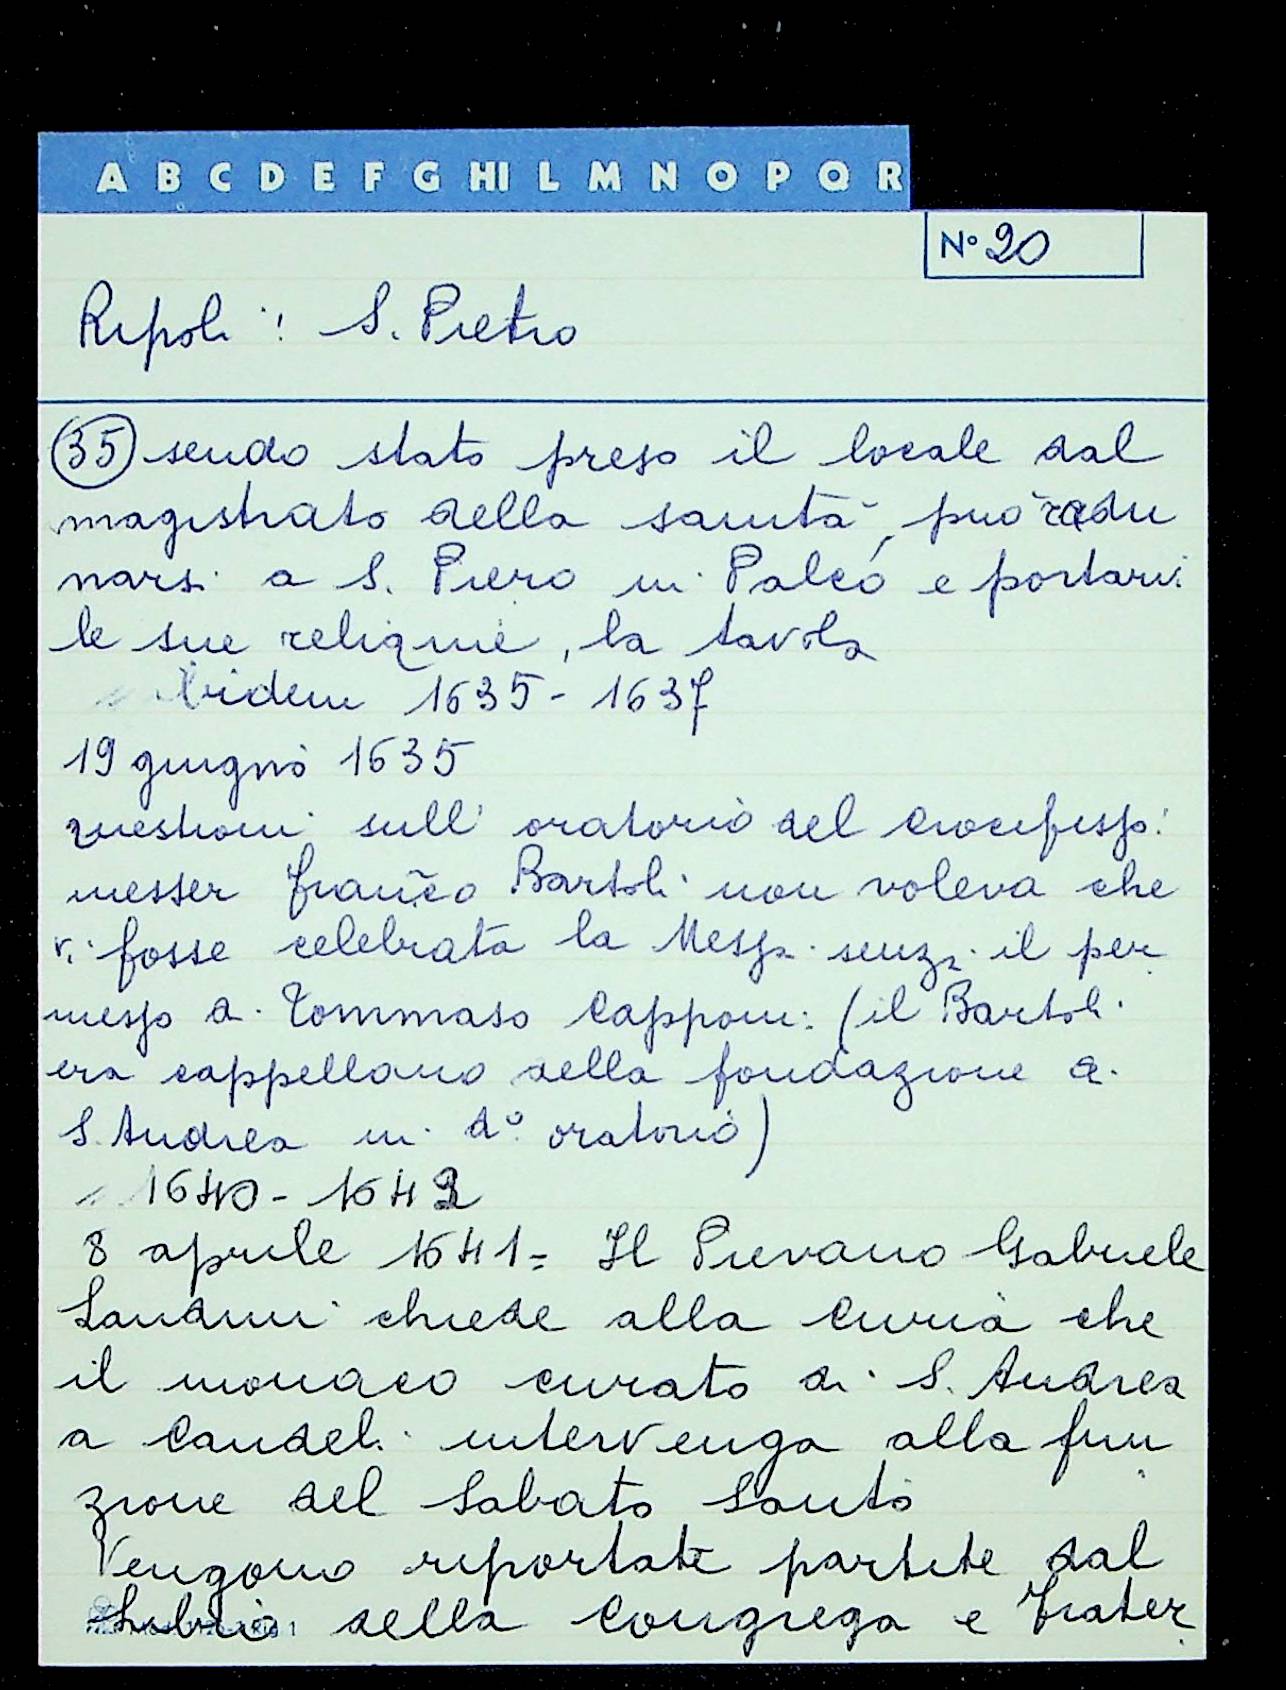 A B C D E F G HI L M N O P Q R
N° 20
Ripoli: S. Pietro
35 sendo stato preso il locale dal
magistrato della sanità, può radu
narsi a S. Piero in Palco e portarvi
le sue reliquie, la tavola
" Ibidem 1635 - 1637
19 giugno 1635
questioni sull'oratorio del Crocefisso:
messer Franco Bartoli non voleva che
vi fosse celebrata la Messa senza il per
messo di Tommaso Capponi: (il Bartoli
era cappellano della fondazione di
S. Andrea in d° oratorio)
" 1640 - 1642
8 aprile 1641 = Il Pievano Gabriele
Landini chiede alla Curia che
il monaco curato di S. Andrea
a Candeli intervenga alla fun
zione del Sabato Santo
Vengono riportate partite dal
Libro della Congrega e Frater